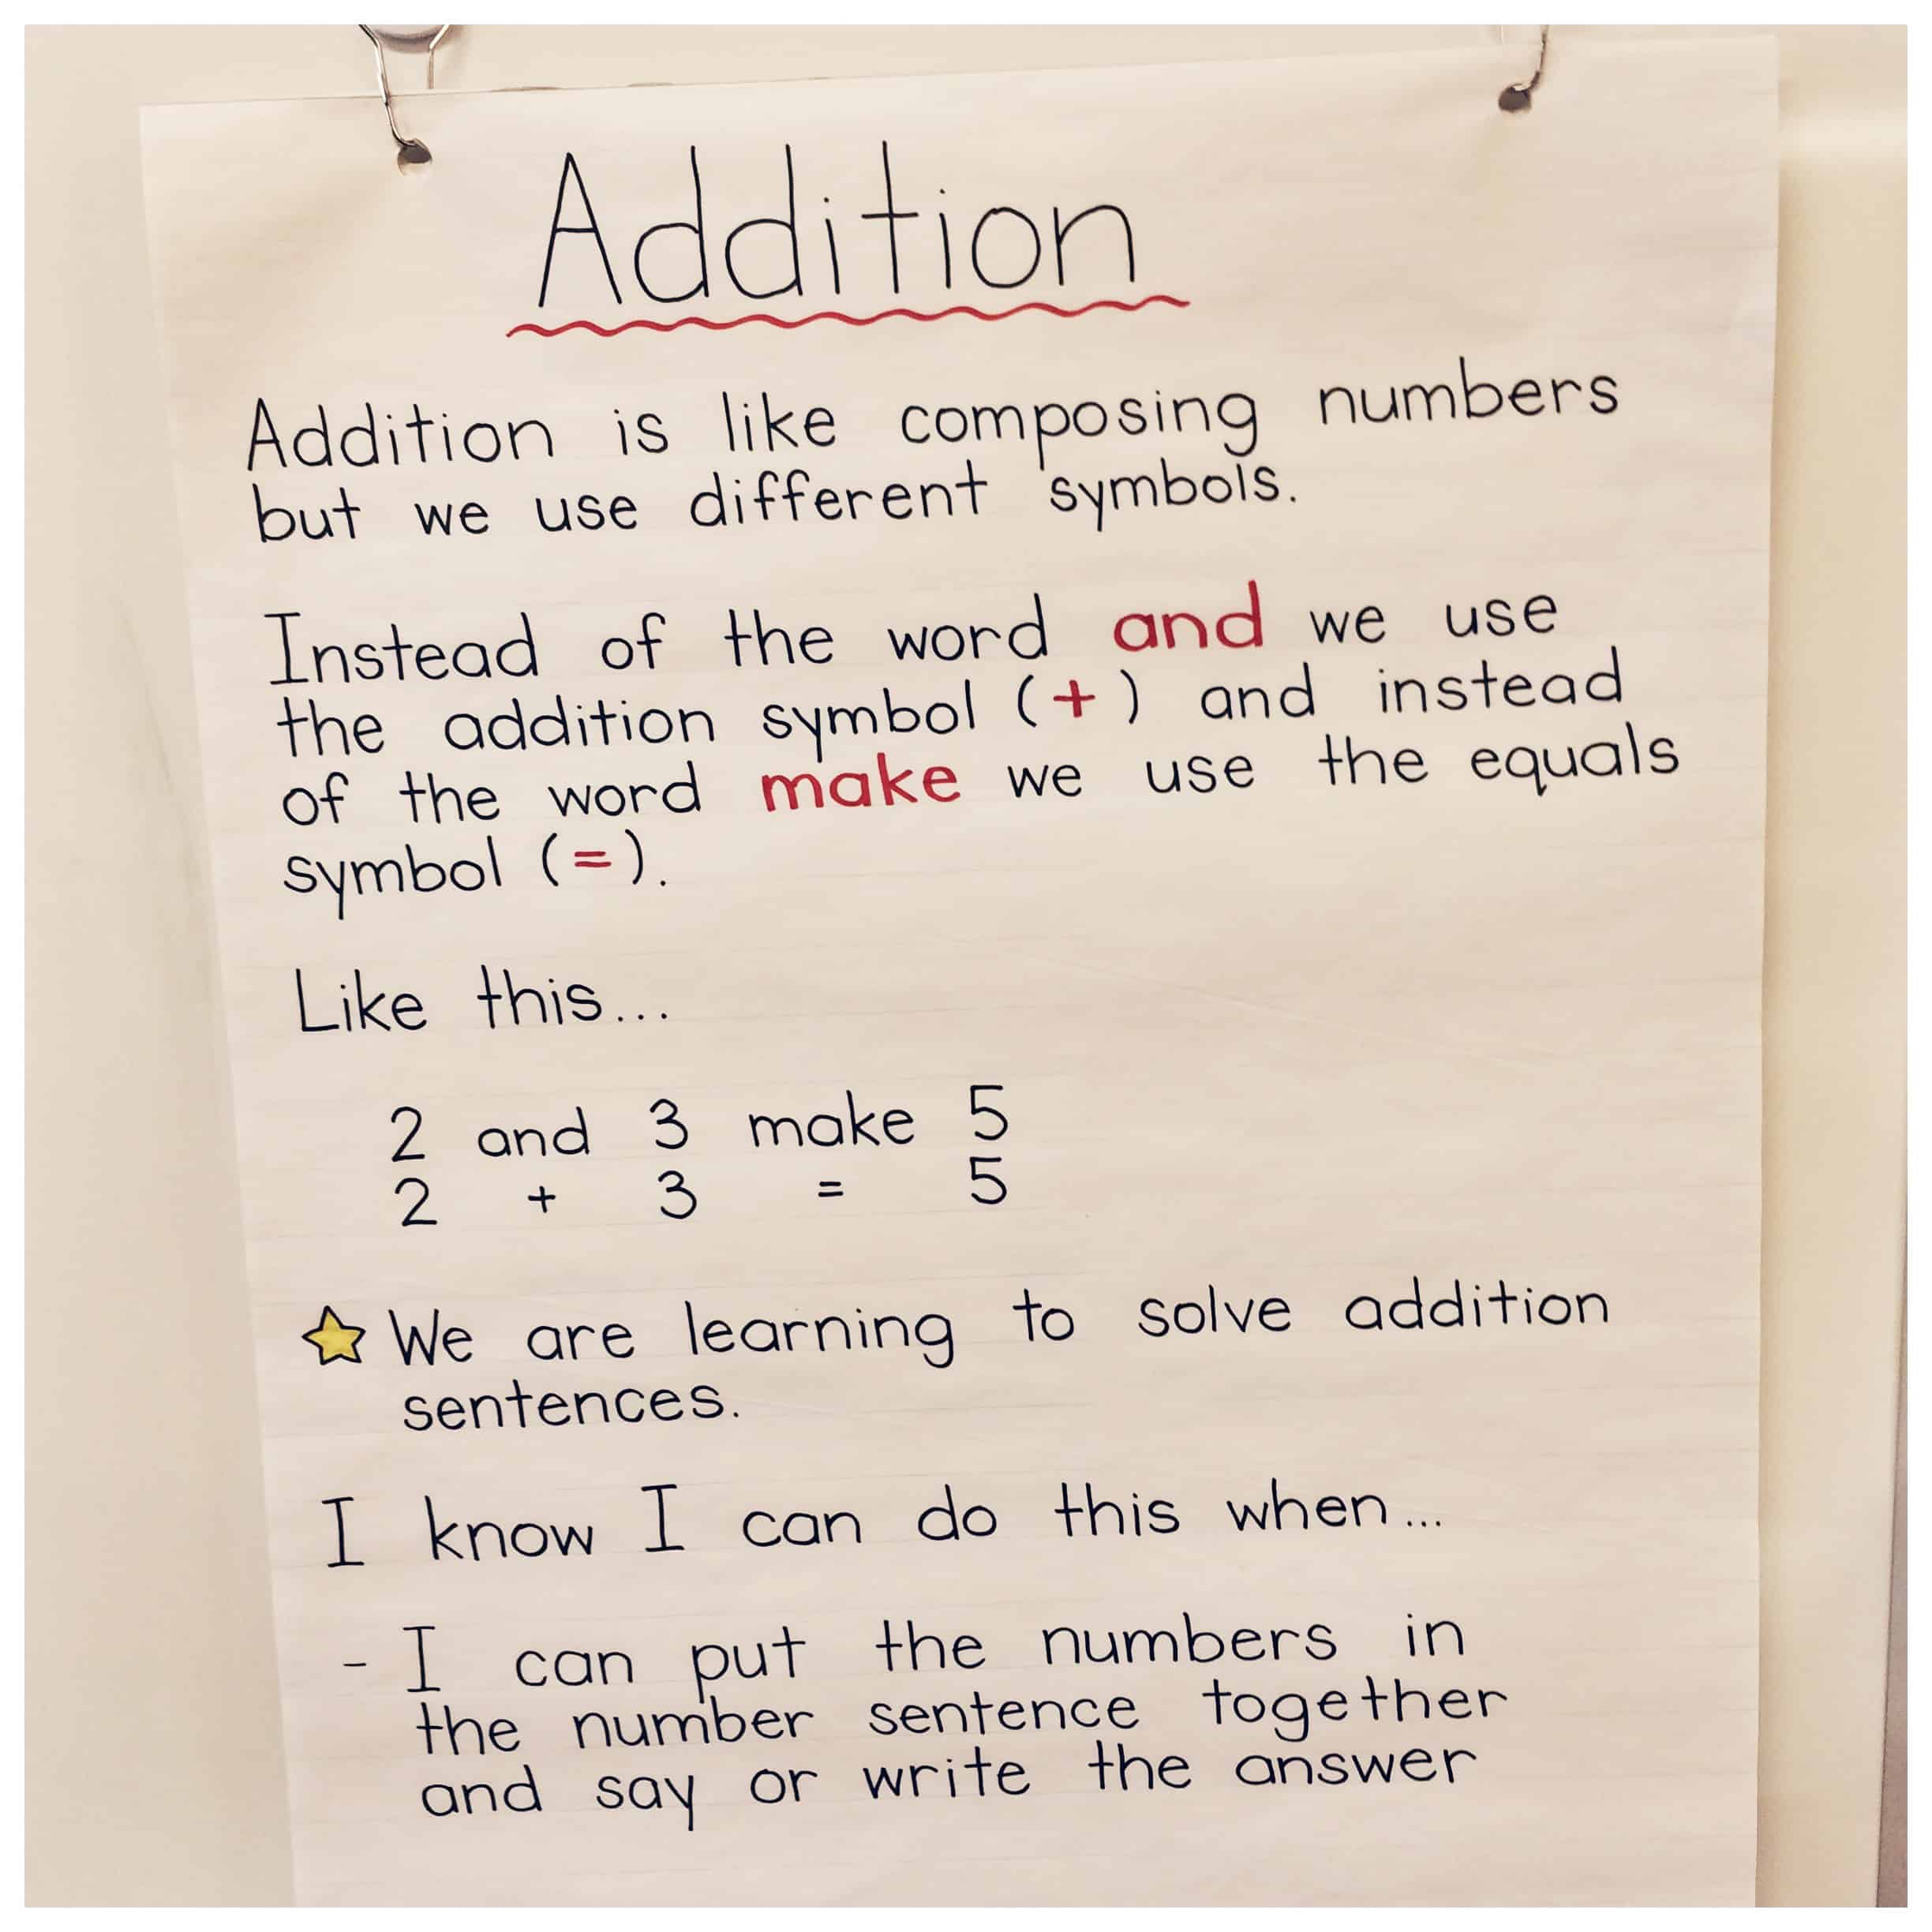 Addition
Addition is like composing numbers
but we use different symbols.
Instead of the word and we use
the addition symbol (+) and instead
of the word make we use the equals
symbol (=).
Like this...
2 and 3 make 5
2 + 3 = 5
We are learning to solve addition
sentences.
I know I can do this when...
- I can put the numbers in
the number sentence together
and say or write the answer